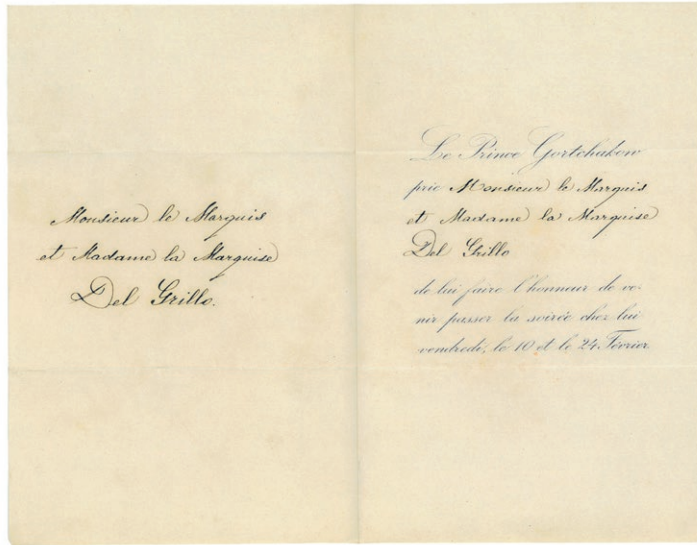 Monsieur le Marquis
et Madame la Marquise
Del Grillo.
Le Prince Gortchakow
prie Monsieur le Marquis
et Madame la Marquise
Del Grillo
de lui faire l'honneur de ve-
nir passer la soirée chez lui
vendredi, le 10 et le 24 Février